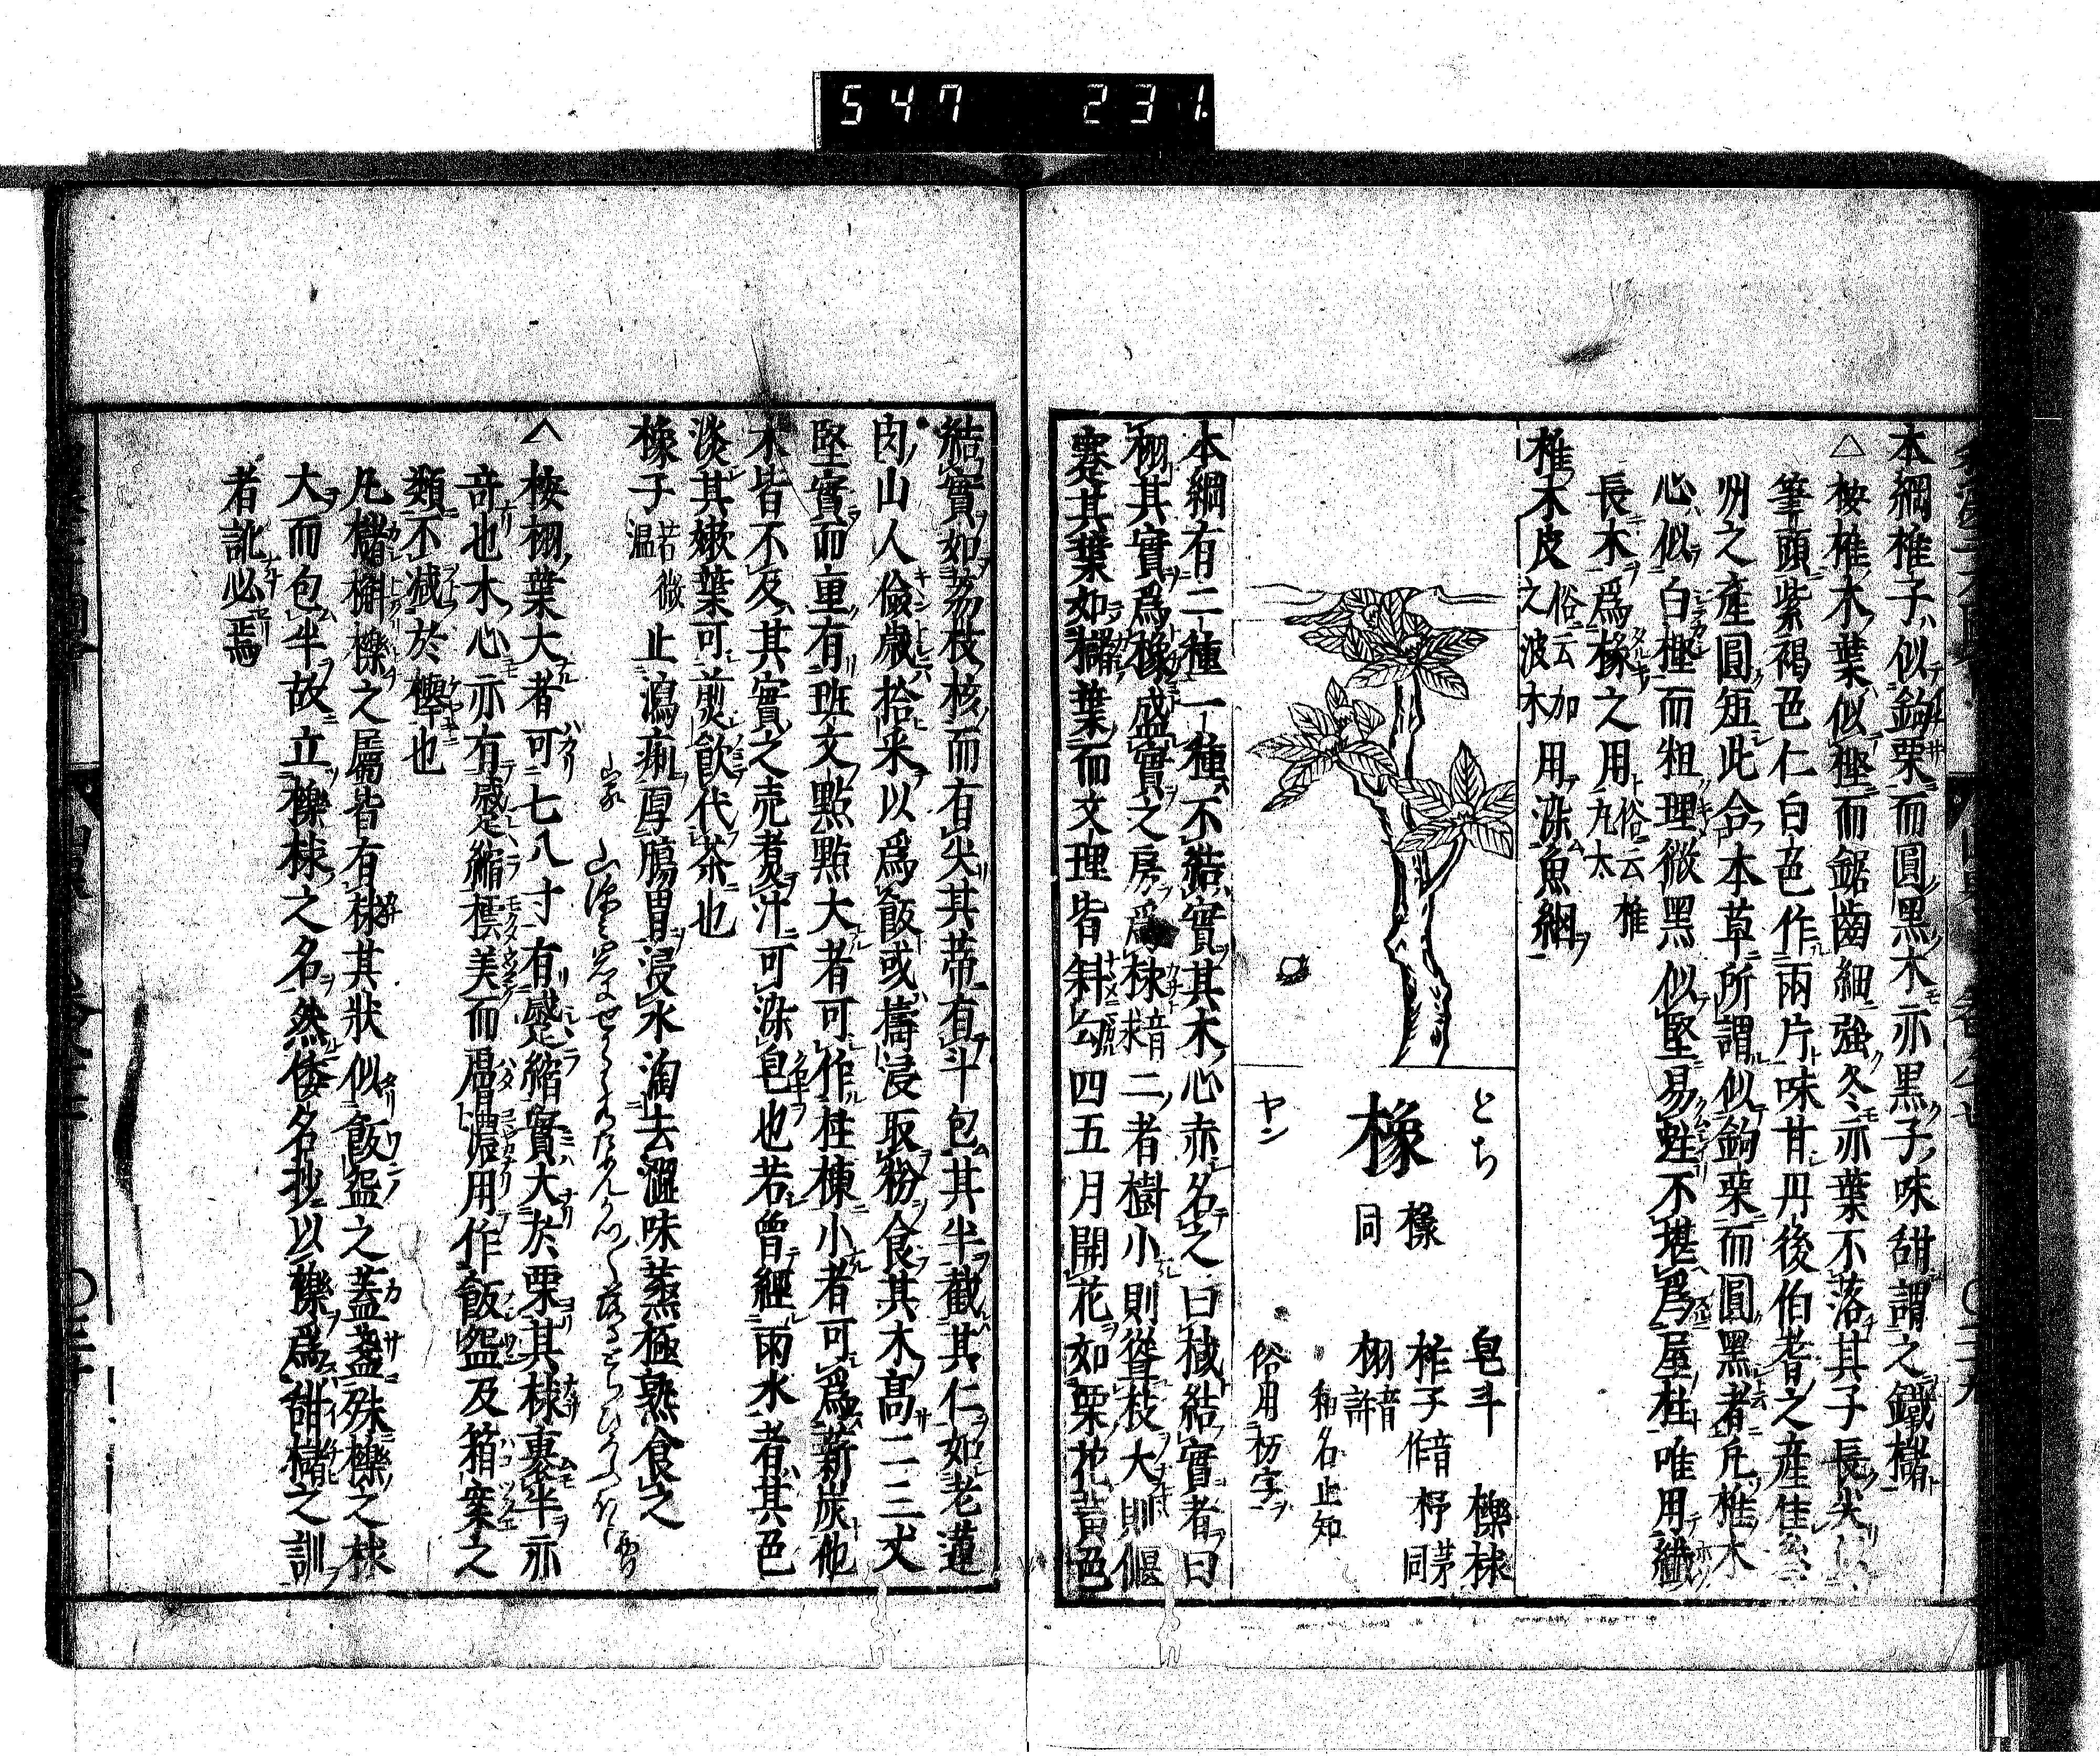 547 231.
本綱椎子似鉤栗而圓黑木亦黒子味甜謂之鐵櫧
△按椎木葉似樫而鋸齒細強冬亦葉不落其子長尖
筆頭紫褐色仁白色作兩片味甘丹後伯耆之産佳
州之産圓短此合本草所謂似鉤栗而圓黑者凡椎木
心似白樫而粗理微黑似堅易蛀不堪爲屋柱唯用纎
長木爲椽之用俗云椎丸太
椎木皮俗云加之波木用染魚網
とち
橡
ヤン
橡同
皂斗 櫟梂
柞子音作 杼茅同
栩音許
和名止知
俗用杤字
本綱有二種一種不結實其木心赤名之曰棫結實者曰
栩其實爲橡盛實之房爲梂音求二者樹小則聳枝大則偃
蹇其葉如櫧葉而文理皆斜勾四五月開花如栗花黄色
結實如茘枝核而有尖其蒂有斗包其半截其仁如老蓮
肉山人儉歳拾采以爲飯或擣浸取粉食其木髙二三丈
堅實而重有班文點點大者可作柱棟小者可爲薪炭他
木皆不及其實之売煑汁可染皂也若曾經雨水者其色
淡其嫩葉可煎飮代茶也
橡子苦微温止瀉痢厚膓胃浸水淘去澀味蒸極熟食之
山家
△按栩葉大者可七八寸有蹙縮實大於栗其梂裹半亦
竒也木心亦有蹙縮橒美而層濃用作飯盌及箱案之
類不減於欅也
凡櫧槲櫟之屬皆有梂其狀似飯盌之葢盞殊櫟之梂
大而包半故立櫟梂之名然倭名抄以櫟爲甜櫧之訓
者訛必正焉